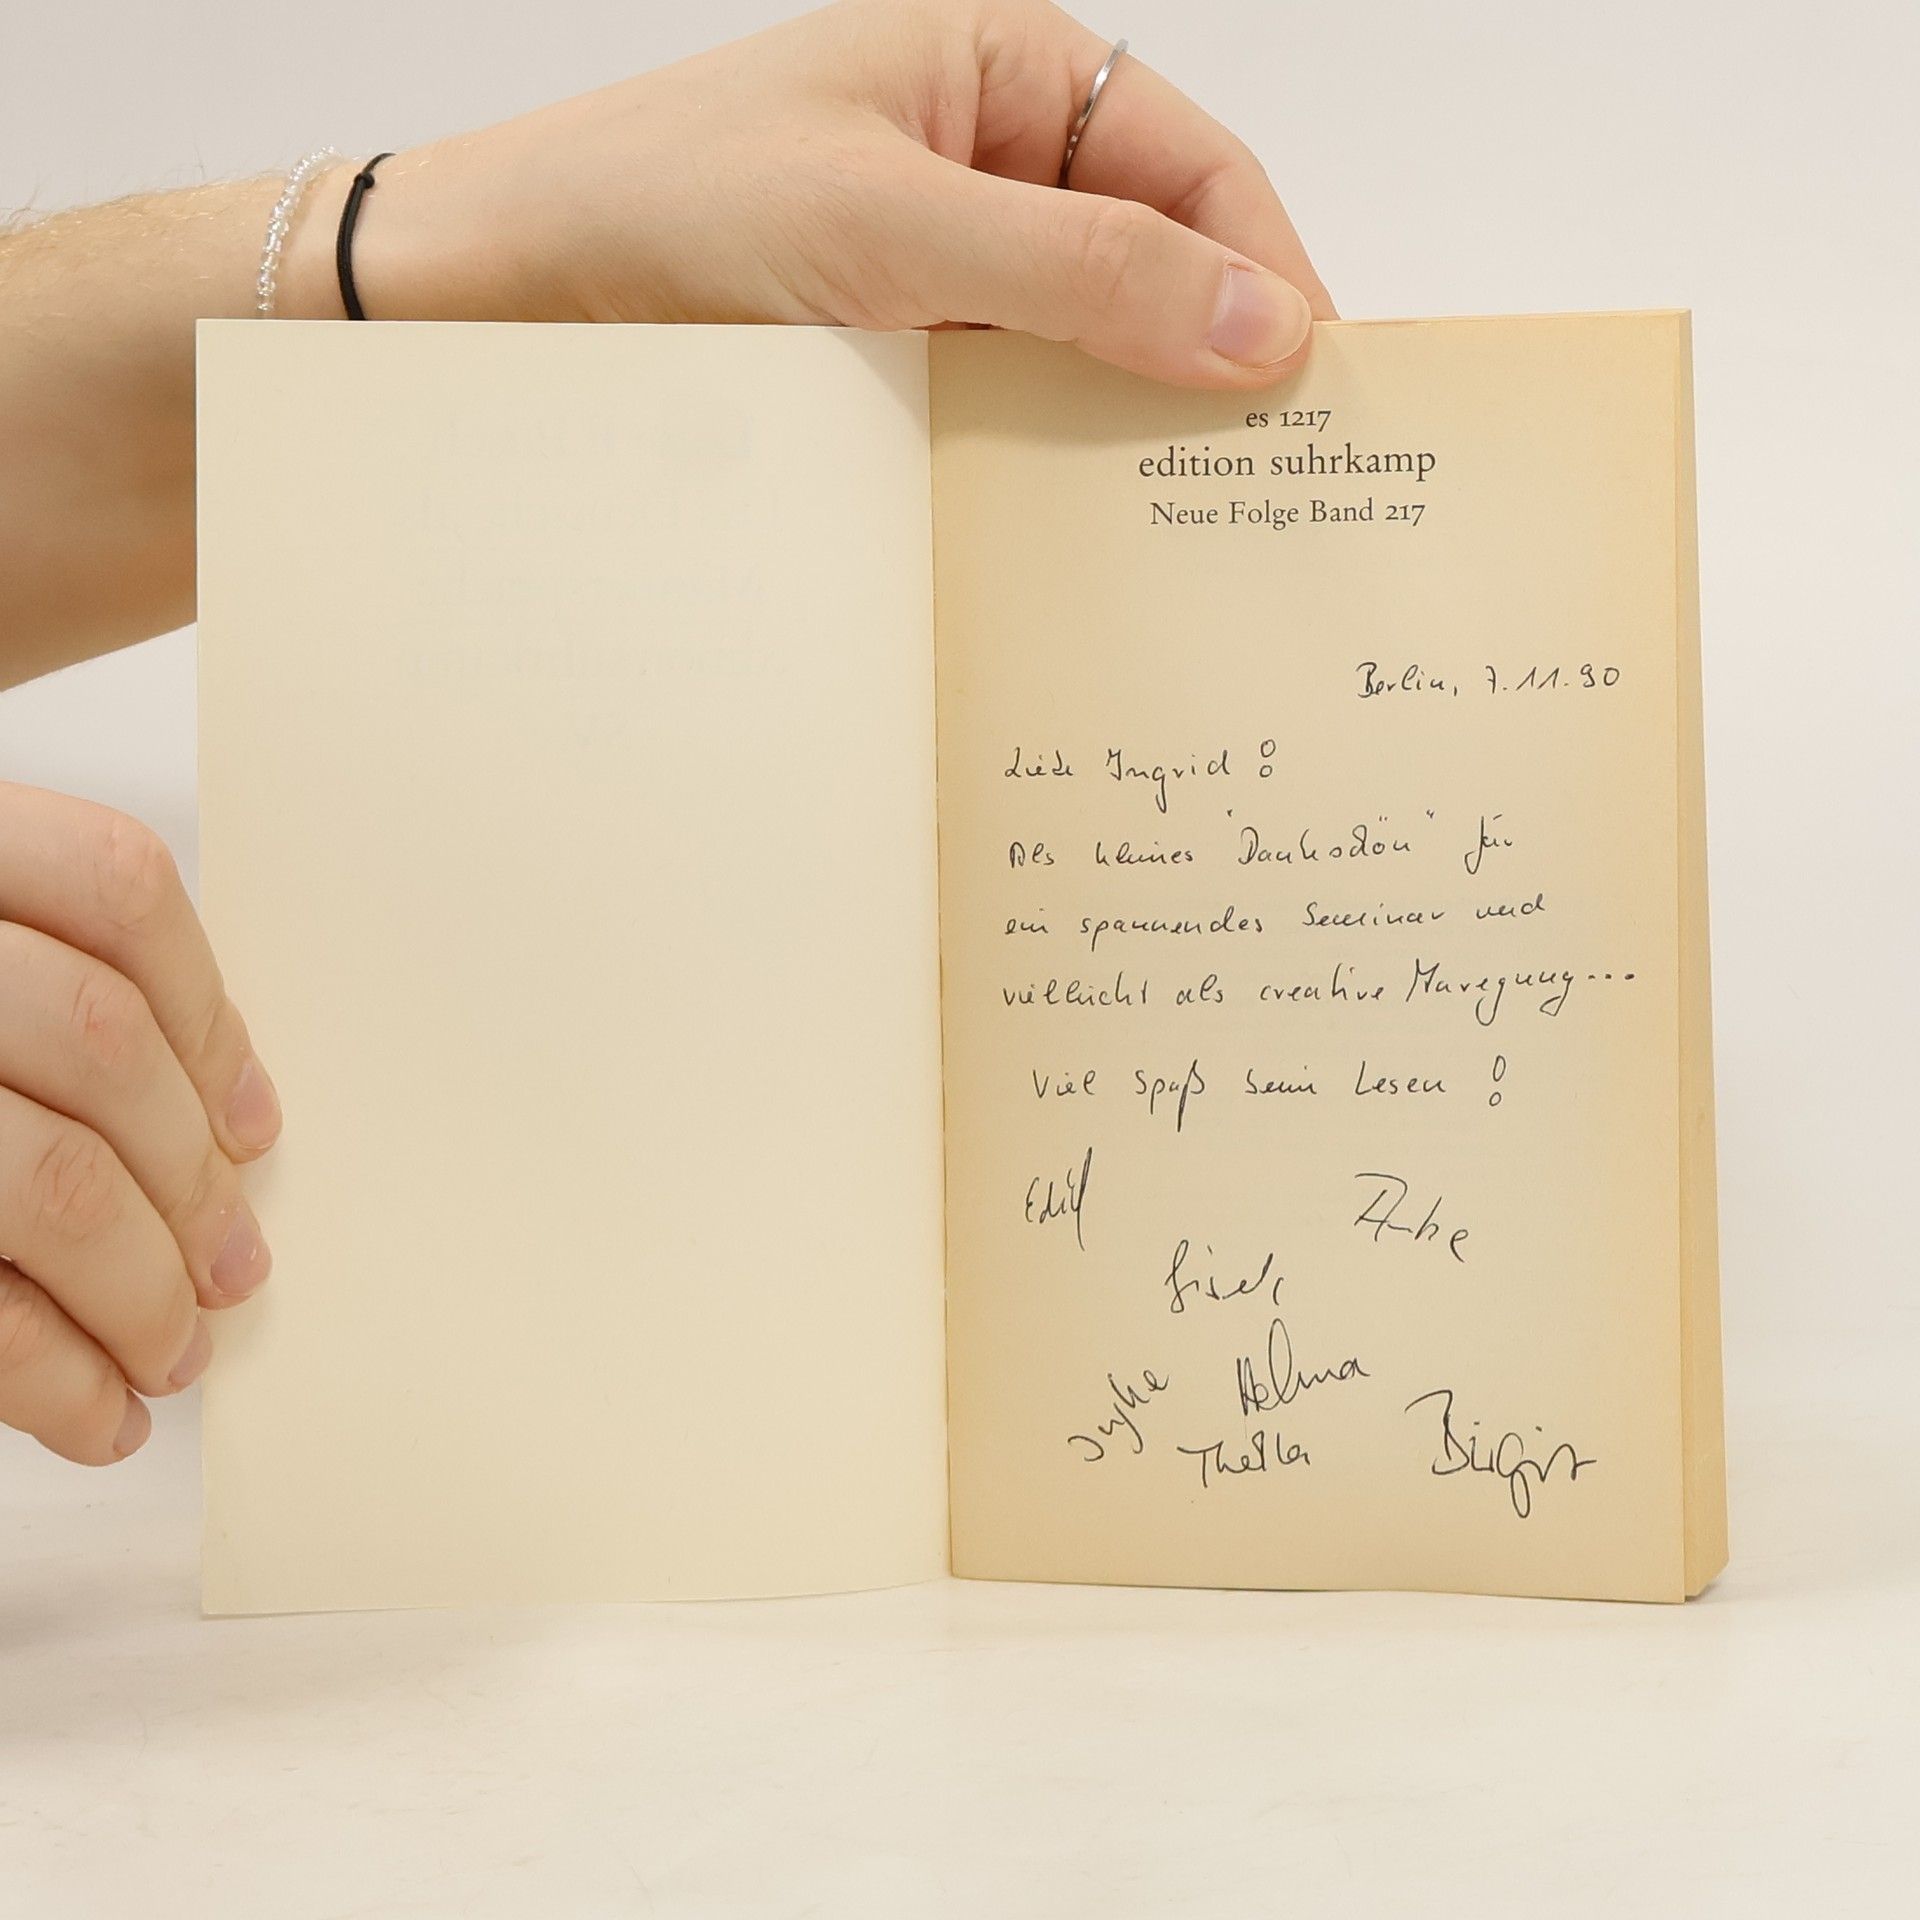 es 1217
edition suhrkamp
Neue Folge Band 217
Berlin, 7.11.90
Liebe Ingrid!
Als kleines "Dankschön" für
ein spannendes Seminar und
vielleicht als creative Anregung...
Viel Spaß beim Lesen!
Edith
Anke
Gisela
Helma
Thekla
Birgit